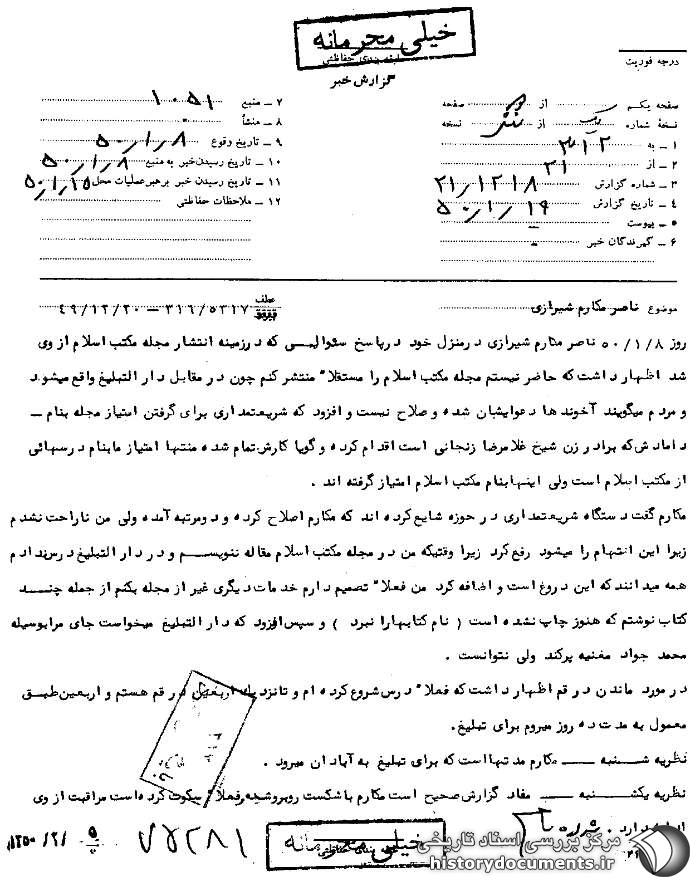 خیلی محرمانه
طبقه بندی حفاظتی
گزارش خبر
درجه فوریت
صفحه یکم از صفحه
نسخه شماره از نسخه
۱ ـ به ۳۱۲
۲ ـ از ۲۱
۳ ـ شماره گزارش ۲۱/۱۲۱۸
۴ ـ تاریخ گزارش ۵۰/۱/۱۹
۵ ـ پیوست ـ
۶ ـ گیرندگان خبر ـ
۷ ـ منبع ۱۰۵۱
۸ ـ منشأ
۹ ـ تاریخ وقوع ۵۰/۱/۸
۱۰ ـ تاریخ رسیدن خبر به منبع ۵۰/۱/۸
۱۱ ـ تاریخ رسیدن خبر برهبر عملیات محل ۵۰/۱/۱۵
۱۲ ـ ملاحظات حفاظتی
موضوع ناصر مکارم شیرازی عطف ۳۱۶/۵۳۱۷ – ۴۹/۱۲/۲۰
روز ۵۰/۱/۸ ناصر مکارم شیرازی در منزل خود در پاسخ سئوالیسی که در زمینه انتشار مجله مکتب اسلام از وی
شد اظهار داشت که حاضر نیستم مجله مکتب اسلام را مستقلا" منتشر کنم چون در مقابل دار التبلیغ واقع میشود و
مردم میگویند آخوند ها دعوایشان شده و صلاح نیست و افزود که شریعتمداری برای گرفتن امتیاز مجله بنام ـ
دامادش که برادر زن شیخ غلامرضا زنجانی است اقدام کرده و گویا کارش تمام شده منتها امتیاز ما بنام درسهائی
از مکتب اسلام است ولی اینها بنام مکتب اسلام امتیاز گرفته اند .
مکارم گفت دستگاه شریعتمداری در حوزه شایع کرده اند که مکارم اصلاح کرده و دو مرتبه آمده ولی من ناراحت نشدم
زیرا این اتهام را میشود رفع کرد زیرا وقتیکه من در مجله مکتب اسلام مقاله ننویسم و در دار التبلیغ درس ندادم
همه میدانند که این دروغ است و اضافه کرد من فعلا" تصمیم دارم خدمات دیگری غیر از مجله بکنم از جمله چند
کتاب نوشتم که هنوز چاپ نشده است ( نام کتابها را نبرد ) و سپس افزود که دار التبلیغ میخواست جای مرا بوسیله
محمد جواد مغنیه پرکند ولی نتوانست .
در مورد ماندن در قم اظهار داشت که فعلا" درس شروع کرده ام و تا نزدیک اربعین در قم هستم و اربعین طبق
معمول به مدت ده روز میروم برای تبلیغ.
نظریه شنبه ـ مکارم مدتها است که برای تبلیغ به آبادان میرود .
نظریه یکشنبه ـ مفاد گزارش صحیح است مکارم با شکست روبرو شده فعلا" سکوت کرده است مراقبت از وی
دارد .
۷۷۲۸۱ ۵ /۲/ ۱۳۵۰
خیلی محرمانه
طبقه بندی حفاظتی
مرکز بررسی اسناد تاریخی
historydocuments.ir